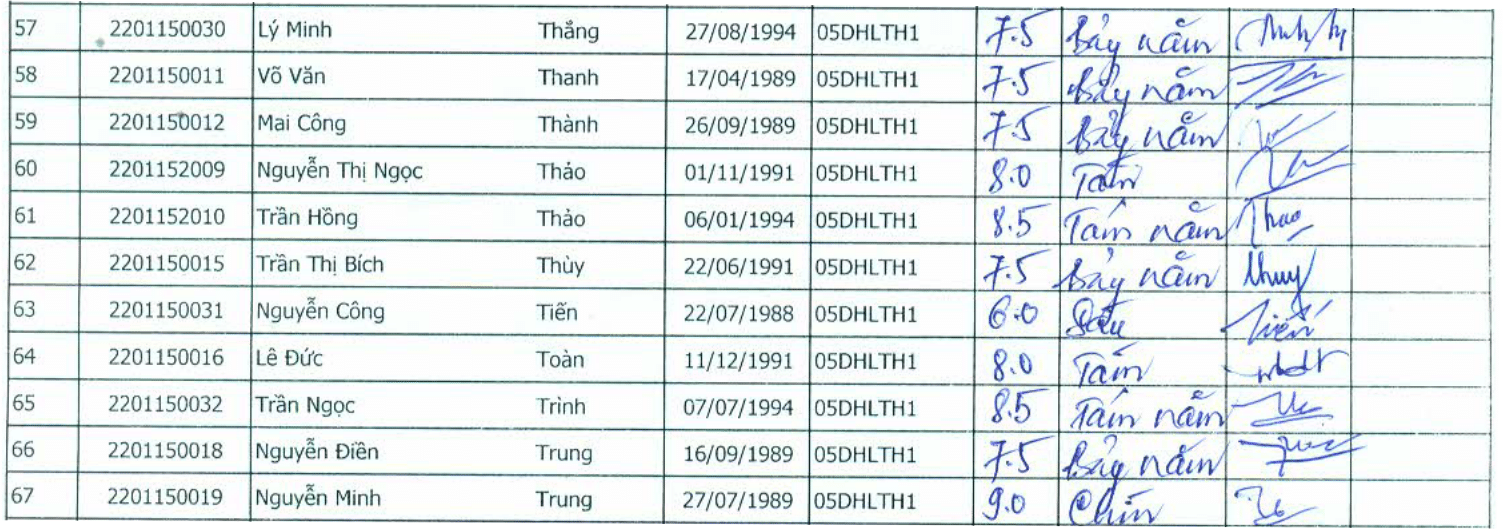 57 2201150030 Lý Minh Thắng 27/08/1994 05DHLTH1 7.5 Bảy năm
58 2201150011 Võ Văn Thanh 17/04/1989 05DHLTH1 7.5 Bảy năm
59 2201150012 Mai Công Thành 26/09/1989 05DHLTH1 7.5 Bảy năm
60 2201152009 Nguyễn Thị Ngọc Thảo 01/11/1991 05DHLTH1 8.0 Tám
61 2201152010 Trần Hồng Thảo 06/01/1994 05DHLTH1 8.5 Tám năm Thao
62 2201150015 Trần Thị Bích Thùy 22/06/1991 05DHLTH1 7.5 Bảy năm thuy
63 2201150031 Nguyễn Công Tiến 22/07/1988 05DHLTH1 6.0 Sáu Tiến
64 2201150016 Lê Đức Toàn 11/12/1991 05DHLTH1 8.0 Tám
65 2201150032 Trần Ngọc Trình 07/07/1994 05DHLTH1 8.5 Tám năm
66 2201150018 Nguyễn Điền Trung 16/09/1989 05DHLTH1 7.5 Bảy năm
67 2201150019 Nguyễn Minh Trung 27/07/1989 05DHLTH1 9.0 Chín